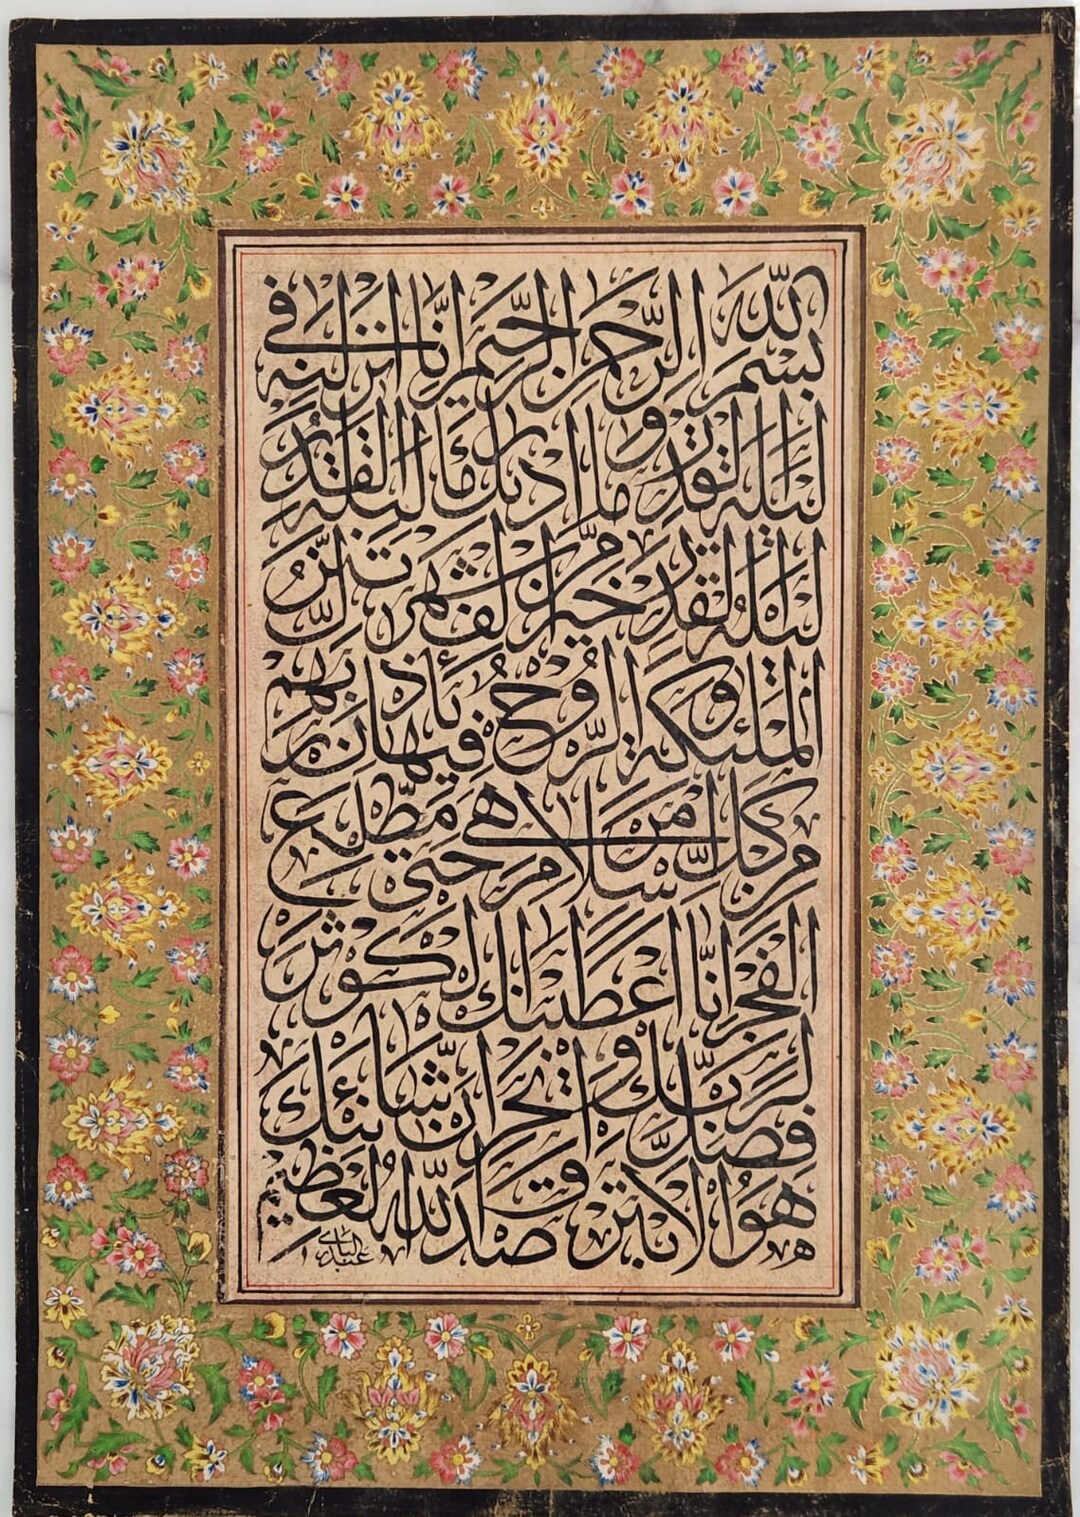 بِسْمِ اللّٰهِ الرَّحْمٰنِ الرَّحِيْمِ اِنَّا انزلنه في
ليلة القدر وما ادريك ما ليلة القدر
ليلة القدر خير من الف شهر تنزل
الملئكة والروح فيها باذن ربهم
من كل امر سلام هي حتى مطلع
الفجر انا اعطينك الكوثر
فصل لربك وانحر ان شانئك
هو الابتر صدق الله العظيم